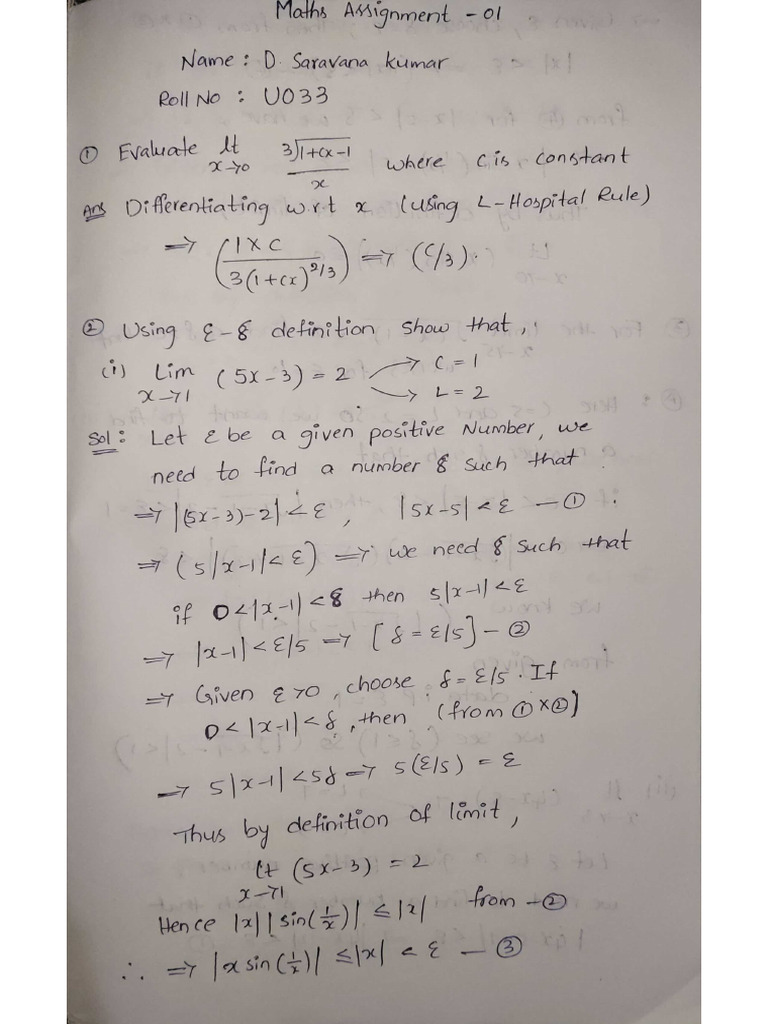 Maths Assignment - 01
Name : D. Saravana kumar
Roll No : U033
① Evaluate lt x→0 3√1+cx-1 / x where c is constant
Ans Differentiating w.r.t x (using L-Hospital Rule)
⇒ (1×c / 3(1+cx)^2/3) ⇒ (c/3).
② Using ε-δ definition show that,
(i) Lim x→1 (5x-3) = 2 → C = 1
→ L = 2
Sol : Let ε be a given positive Number, we
need to find a number δ such that
⇒ |(5x-3)-2| < ε, |5x-5| < ε — ①
⇒ (5|x-1| < ε) ⇒ we need δ such that
if 0<|x-1|<δ then 5|x-1|<ε
⇒ |x-1| < ε/5 ⇒ [δ = ε/5] - ②
⇒ Given ε>0, choose δ = ε/5. If
0<|x-1|<δ, then (from ① × ②)
⇒ 5|x-1| < 5δ ⇒ 5(ε/5) = ε
Thus by definition of limit,
lt x→1 (5x-3) = 2
Hence |x||sin(1/x)| ≤ |x| from - ②
∴ ⇒ |x sin(1/x)| ≤ |x| < ε — ③